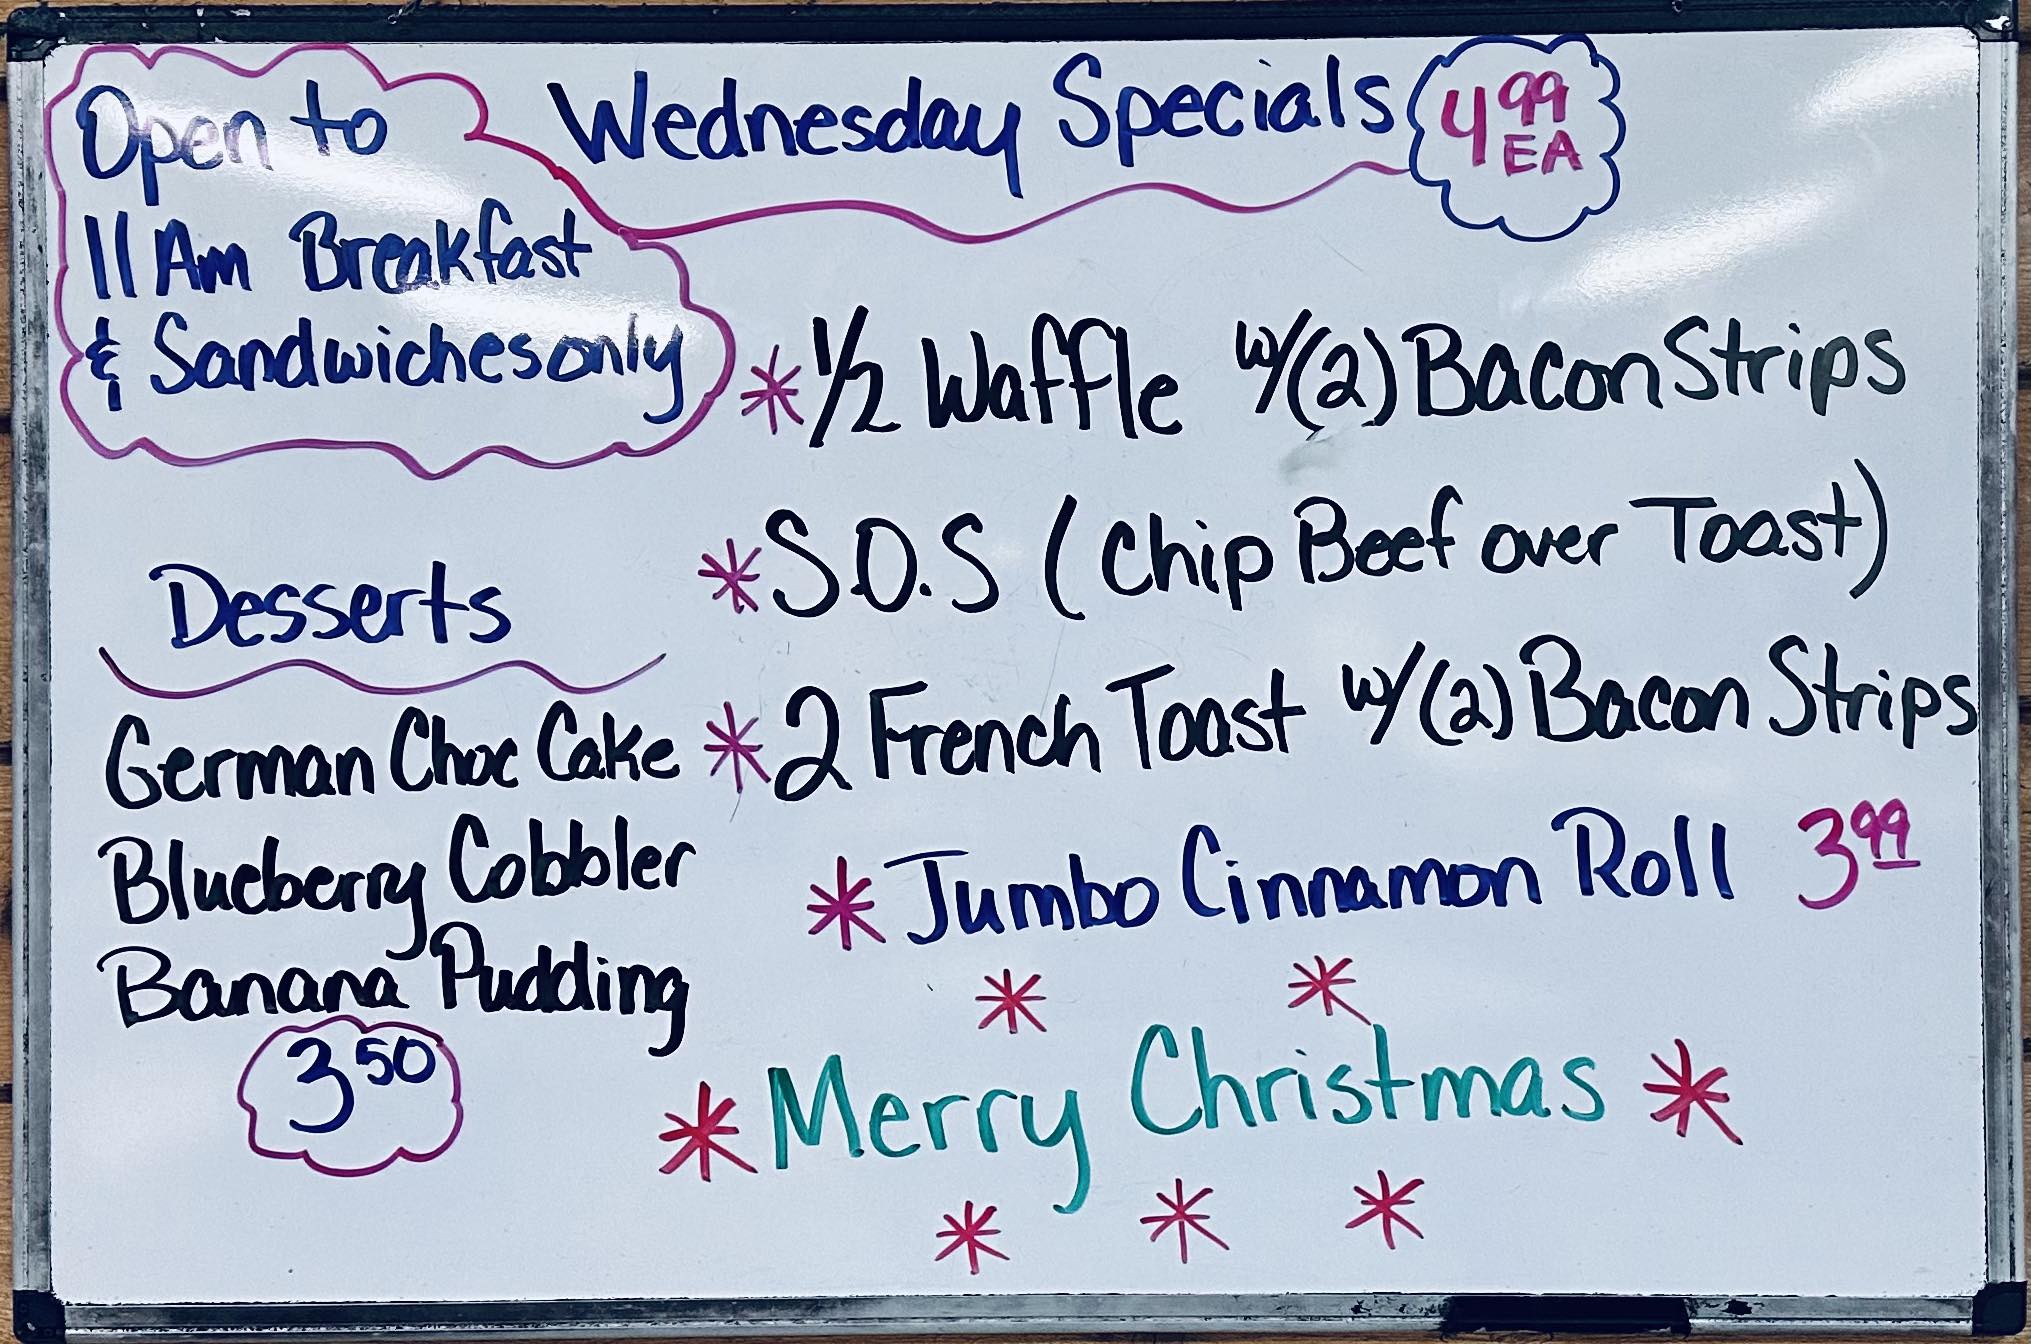 Open to
11 Am Breakfast
& Sandwiches only
Wednesday Specials 4.99 EA
* 1/2 Waffle w/(2) Bacon Strips
* S.O.S (Chip Beef over Toast)
* 2 French Toast w/(2) Bacon Strips
* Jumbo Cinnamon Roll 3.99
Desserts
German Choc Cake
Blueberry Cobbler
Banana Pudding
3.50
* Merry Christmas *